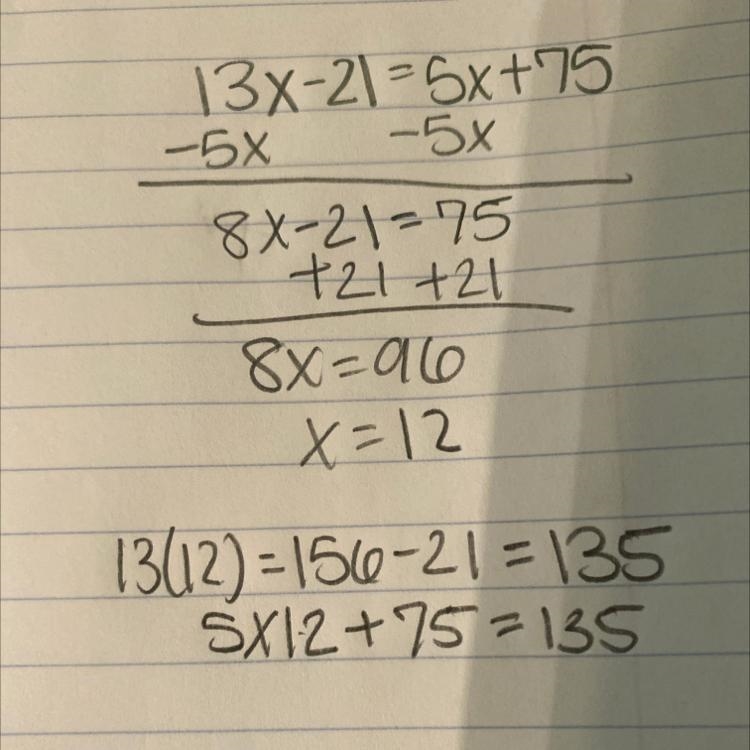 13x-21=5x+75
-5x -5x
8x-21=75
+21 +21
8x=96
x=12
13(12)=156-21=135
5x12+75=135